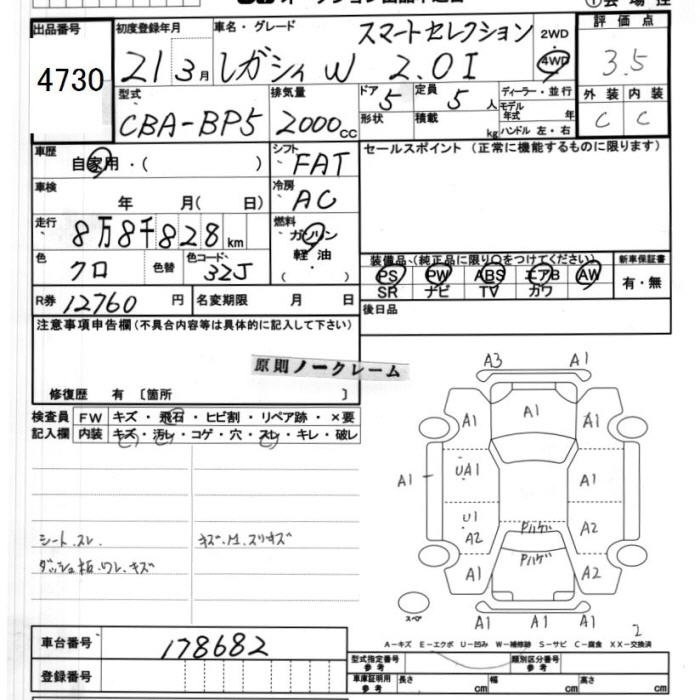 出品番号 初度登録年月 車名・グレード スマートセレクション 2WD 評価点
4730 21 3月 レガシィ W 2.0I 4WD 3.5
型式 排気量 ドア 定員 ディーラー・並行 外装 内装
CBA-BP5 2000cc 5 5人 モデル年式 年 C C
形状 積載 kg ハンドル 左・右
車歴 シフト セールスポイント(正常に機能するものに限ります)
自家用・( ) FAT
車検 冷房
年 月( 日) AC
走行 燃料
8万8千828km ガソリン
軽油
・( )
色 色替 色コード 装備品、(純正品に限り○をつけてください) 新車保証書
クロ 32J PS PW ABS エアB AW 有・無
SR ナビ TV カワ
R券 12760円 名変期限 月 日 後日品
注意事項申告欄(不具合内容等は具体的に記入して下さい)
原則ノークレーム
修復歴 有〔箇所 〕
検査員 FW キズ・飛石・ヒビ割・リペア跡・×要
記入欄 内装 キズ・汚レ・コゲ・穴・スレ・キレ・破レ
シートスレ
ダッシュ板、ワレ、キズ
A3 A1
A1 A1 A1
A1 UA1 A1
U1 A2 A2
Pハゲ
Pハゲ
A1 A2
A1 A1 A1
スペア
2
A-キズ E-エクボ U-凹み W-補修跡 S-サビ C-腐食 XX-交換済
車台番号 178682
型式指定番号 参考 類別区分番号 参考
登録番号 車庫証明用 参考 長さ cm 幅 cm 高さ cm